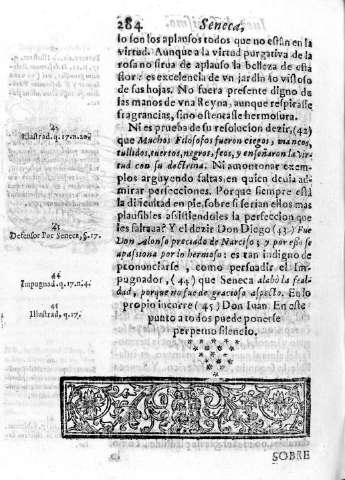 284 Seneca,
lo son los aplausos todos que no están en la
virtud. Aunque a la virtud purgativa de la
rosa no sirua de aplauso la belleza de esta
flor: es excelencia de vn jardin lo vistoso
de sus hojas. No fuera presente digno de
las manos de vna Reyna, aunque respirasse
fragrancias, sino ostentasse hermosura.
Ni es prueba de su resolucion dezir, (42)
que Muchos Filosofos fueron ciegos, mancos,
tullidos, tuertos, negros, feos, y enseñaron la vir-
tud con su doctrina. Ni amontonar exem-
plos arguyendo faltas, en quien deuia ad-
mirar perfecciones. Porque siempre está
la dificultad en pie, sobre si serian ellos mas
plausibles assistiendoles la perfeccion que
les faltaua? Y el dezir Don Diego (43) Fue
Don Alonso preciado de Narciso; y por esso se
apassiona por lo hermoso: es tan indigno de
pronunciarse, como persuadir el Im-
pugnador, (44) que Seneca alabò la feal-
dad, porque no fue de gracioso aspecto. En lo
proprio incurre (45) Don Iuan. En este
punto a todos puede ponerse
perpetuo silencio.
Illustrad. q. 17. n. 20.
43
Defensor Por Seneca, §. 17.
44
Impugnad. q. 17. n. 4.
45
Illustrad. q. 17.
SOBRE